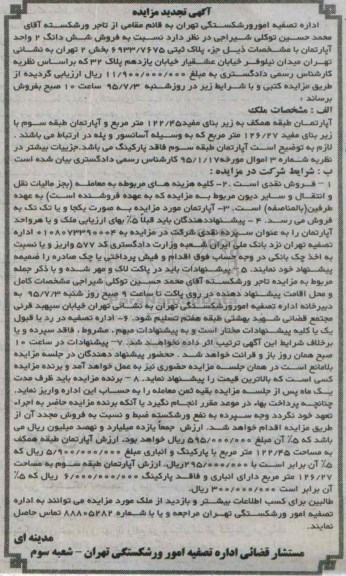 آگهی تجدید مزایده
اداره تصفیه امورورشکستگی تهران به قائم مقامی از تاجر ورشکسته آقای
محمد حسین توکلی شیراجی در نظر دارد نسبت به فروش شش دانگ ۲ واحد
آپارتمان با مشخصات ذیل: جزء پلاک ثبتی ۶۹۳۳/۷۶۷۵ بخش ۲ تهران به نشانی
تهران میدان نیلوفر خیابان عشقیار خیابان یازدهم پلاک ۳۲ که براساس نظریه
کارشناس رسمی دادگستری به مبلغ ۱۱/۹۰۰/۰۰۰/۰۰۰ ریال ارزیابی گردیده از
طریق مزایده کتبی و با شرایط زیر در روز شنبه ۹۵/۷/۳ ساعت ۱۰ صبح بفروش
برساند :
الف : مشخصات ملک
آپارتمـان طبقه همکف به زیر بنای مفید ۱۲۲/۴۵ متر مربع و آپارتمان طبقه سوم با
زیر بنای مفید ۱۲۶/۲۷ متر مربع که به وسیله آسانسور و پله در ارتباط می باشند .
لازم به توضیح است آپارتمان طبقه سوم فاقد پارکینگ می باشد.جزییات بیشتر در
نظریه شماره ۳ اموال مورخه ۹۵/۱/۱۷ کارشناس رسمی دادگستری بیان شده است
ب : شرایط شرکت در مزایده :
۱ – فروش نقدی است . ۲- کلیه هزینه های مربوطه به معامله (بجز مالیات نقل
و انتقال و سایر دیون مربوط به مزایده که به عهده فروشنده است) به عهده
طرفین(بالمناصفه) است. ۳- آپارتمان مورد مزایده به صورت یکجا و یا تک تک به
فروش می رسد. ۴ – پیشنهاددهندگان باید قبلاً ۵٪ بهای ارزیابی ملک و یا هرواحد
آپارتمان را به عنوان سپرده نقدی شرکت در مزایده به ۰۱۰۸۰۷۳۳۹۰۰۰۴ اداره
تصفیه تهران نزد بانک ملی ایران شعبه وزارت دادگستری کد ۵۷۷ واریز و یا نسبت
به اخذ چک بانکی در وجه حساب فوق اقدام و فیش پرداختی یا چک صادره را ضمیمه
پیشنهاد خود نمایند. ۵ – پیشنهادات باید در پاکت لاک و مهر شده و با ذکر جمله
مربوط به مزایده تاجر ورشکسته آقای محمد حسین توکلی شیراجی مشخصات کامل
و محل اقامت پیشنهاد دهنده در روی پاکت تا ساعت ۹ صبح روز شنبه ۹۵/۷/۳ به
دبیرخانه اداره تصفیه امورورشکستگی تهران به نشانی تهران خیابان سپهبد قرنی
مجتمع قضائی شهید بهشتی طبقه هفتم تسلیم شود. ۶- اداره تصفیه در رد یا قبول
یک یا کلیه پیشنهادات مختار است و به پیشنهادات مبهم ، مشروط ، فاقد سپرده و یا
برخلاف شرایط این آگهی ترتیب اثر داده نخواهد شد. ۷- پیشنهادات در ساعت ۱۰
صبح همان روز باز و قرائت خواهد شد . حضور پیشنهاد دهندگان در جلسه مزایده
بلامانع است در همان جلسه مزایده حضوری نیز به عمل خواهد آمد و برنده مزایده
کسی است که بالاترین قیمت را پیشنهاد نماید. ۸ – برنده مزایده باید ظرف مدت
یک ماه پس از جلسه مزایده بقیه ثمن معامله را به حساب این اداره واریز نماید.
چنانچه پرداخت بهاء در موعد مقرر انجام نگیرد یا آنکه برنده مزایده حاضر به اجراء
تعهد خود نگردد وجه سپرده به نفع ورشکسته ضبط و نسبت به فروش مجدد آن از
طریق مزایده اقدام خواهد شد. ارزش جمعاً یازده میلیارد و نهصد میلیون ریال می
باشد که ۵٪ آن مبلغ ۵۹۵/۰۰۰/۰۰۰ ریال خواهد بود. ارزش آپارتمان طبقه همکف
به مساحت ۱۲۲/۴۵ متر مربع با پارکینگ و انباری مبلغ ۵/۹۰۰/۰۰۰/۰۰۰ ریال که
۵٪ آن برابر است با ۲۹۵/۰۰۰/۰۰۰ریال. ارزش آپارتمان طبقه سوم به مساحت
۱۲۶/۲۷ متر مربع دارای انباری و فاقد پارکینگ ۶/۰۰۰/۰۰۰/۰۰۰ ریال که ۵٪
آن برابر است ۳۰۰/۰۰۰/۰۰۰ ریال.
طالبین برای کسب اطلاعات بیشتر و بازدید از ملک مورد مزایده می توانند به اداره
تصفیه امور ورشکستگی تهران مراجعه و یا با شماره ۸۸۸۰۵۲۸۲ تماس حاصل
نمایند.
مدینه ای
مستشار قضائی اداره تصفیه امور ورشکستگی تهران – شعبه سوم